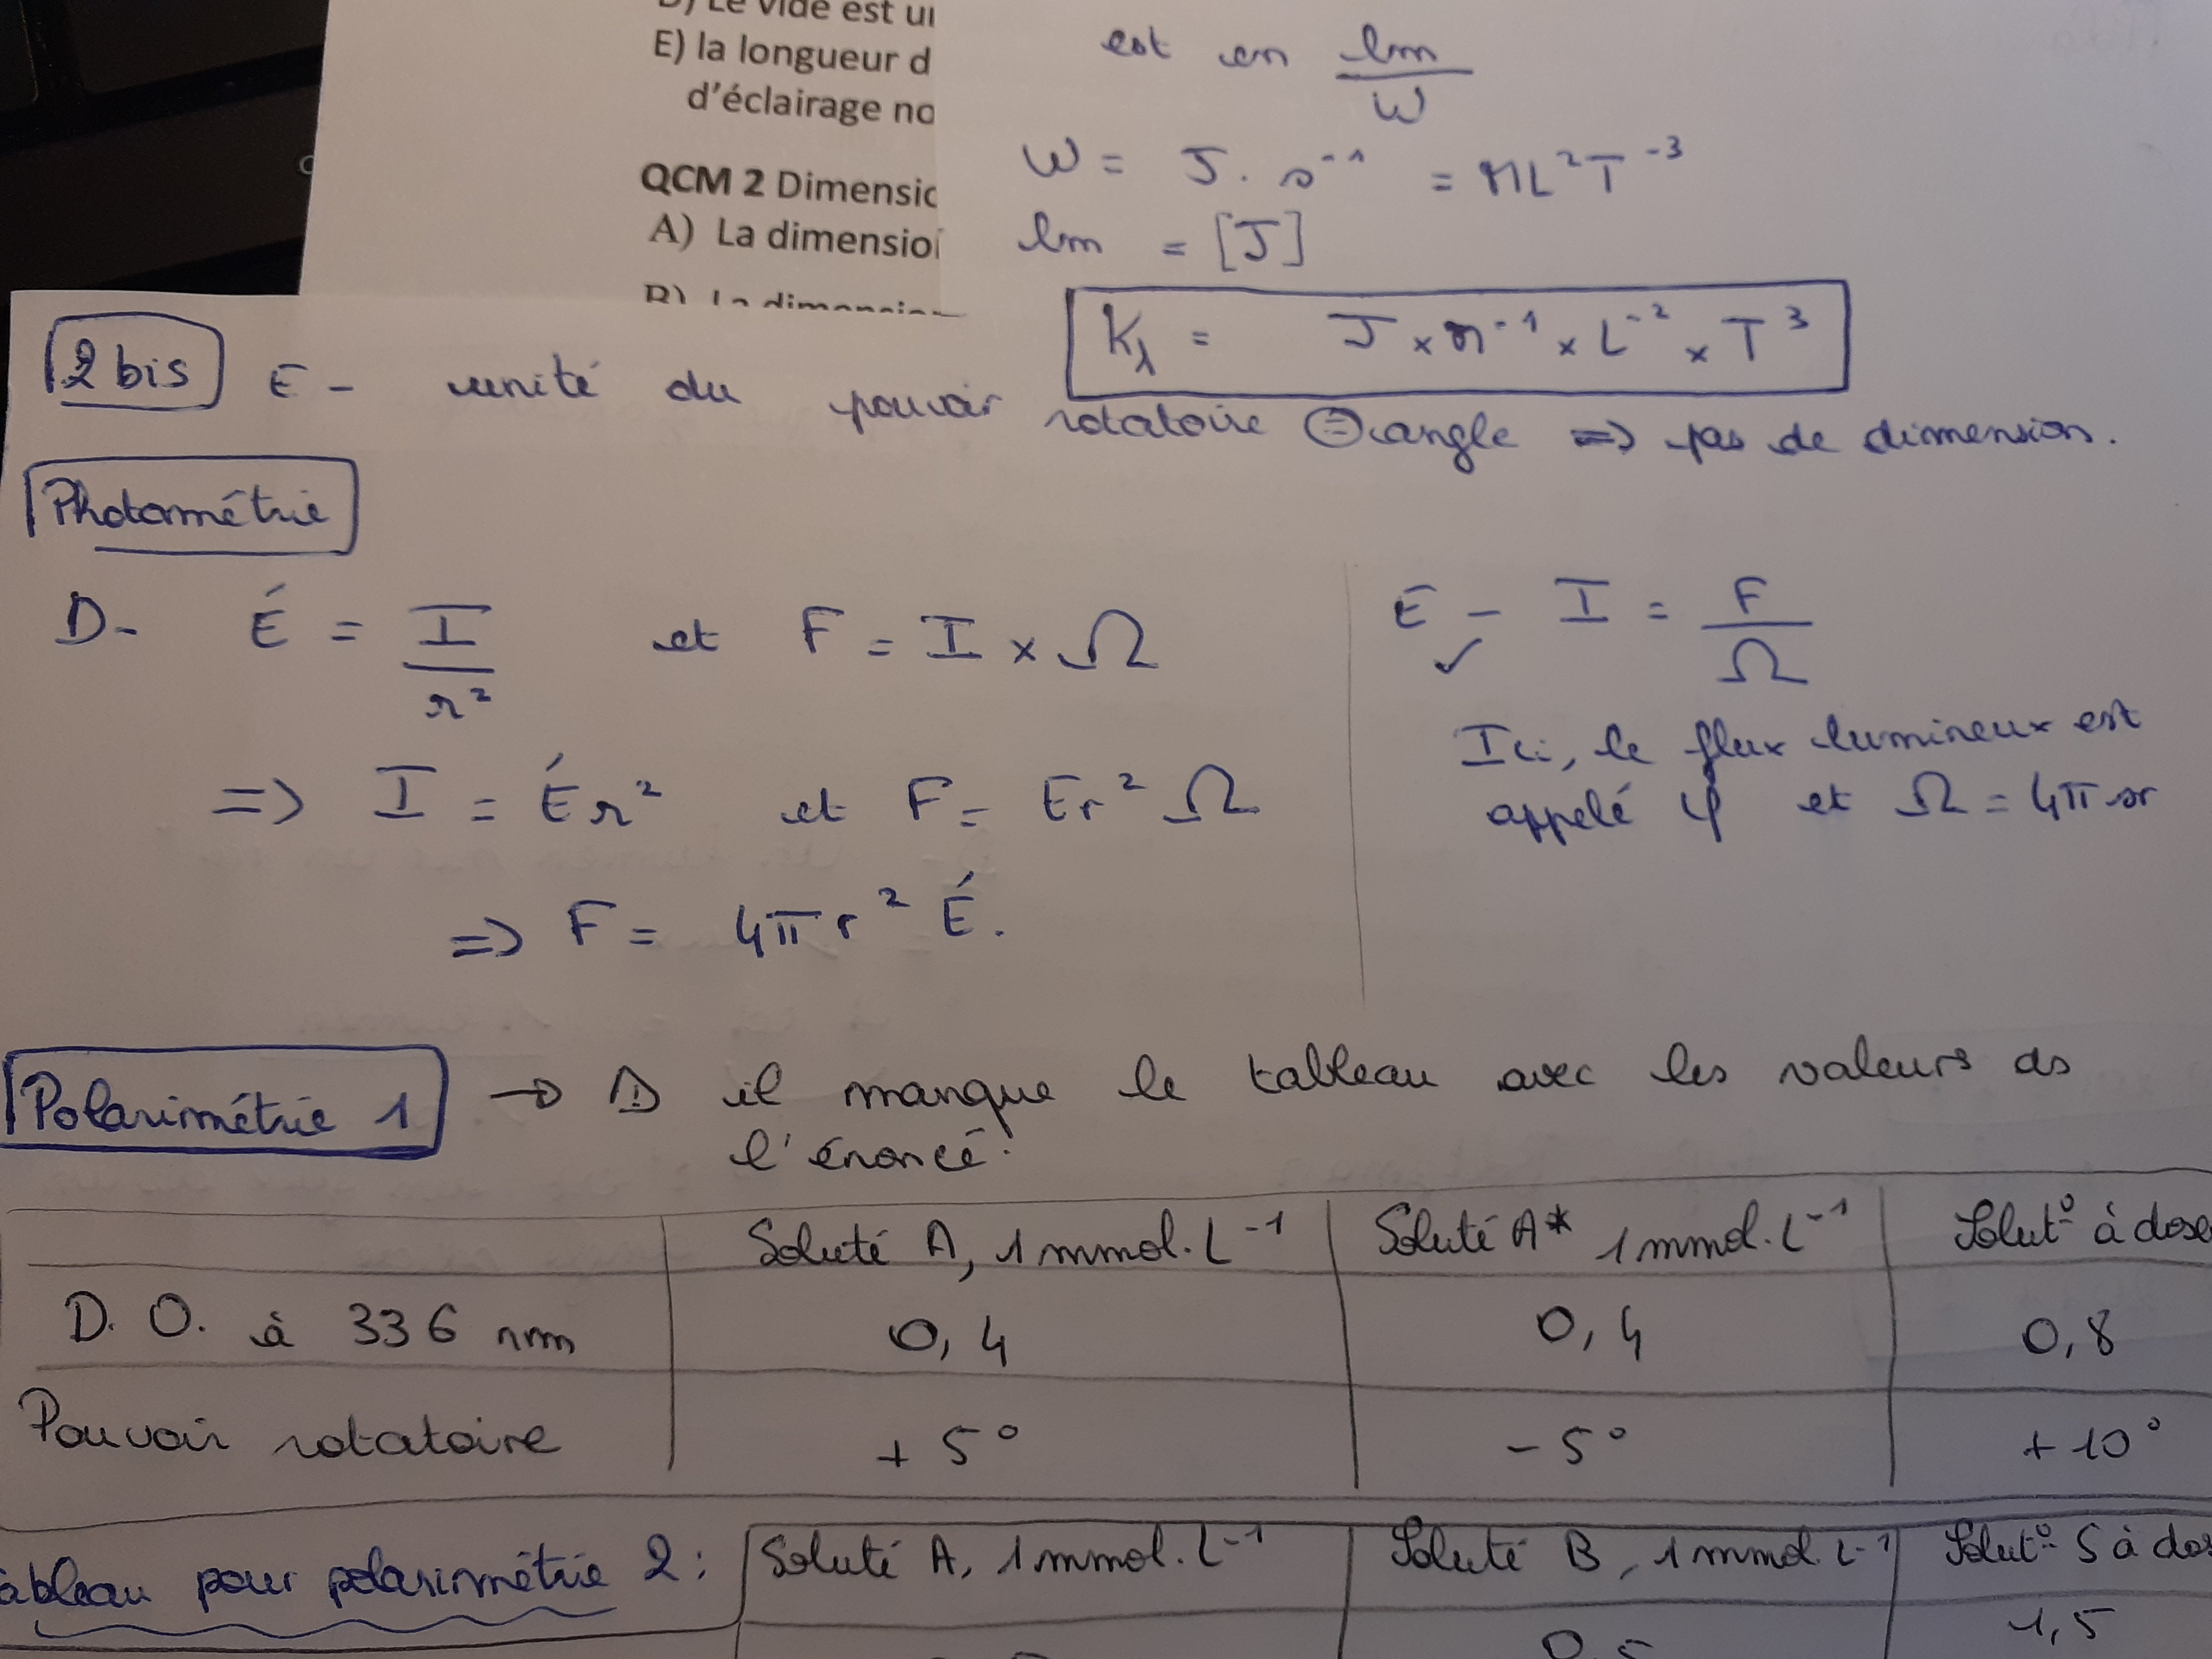 D) Le vide est u
E) la longueur d
d'éclairage no
QCM 2 Dimensio
A) La dimension
B) La dimension
est en lm/W
W = J. s⁻¹ = ML²T⁻³
lm = [J]
Kλ = J × M⁻¹ × L⁻² × T³
2 bis E - unité du pouvoir rotatoire = angle => pas de dimension.
Photométrie
D- É = I/r² et F = I × Ω
=> I = Ér² et F = Er²Ω
=> F = 4πr²É.
E - I = F/Ω
✓
Ici, le flux lumineux est
appelé φ et Ω = 4π sr
Polarimétrie 1 → ⚠ il manque le tableau avec les valeurs ds
l'énoncé!
Soluté A, 1 mmol.L⁻¹ Soluté A* 1 mmol.L⁻¹ Solut° à dose
D.O. à 336 nm 0,4 0,4 0,8
Pouvoir rotatoire + 5° - 5° + 10°
ableau pour polarimétrie 2: Soluté A, 1 mmol.L⁻¹ Soluté B, 1 mmol.L⁻¹ Solut° S à dos
0,5 1,5